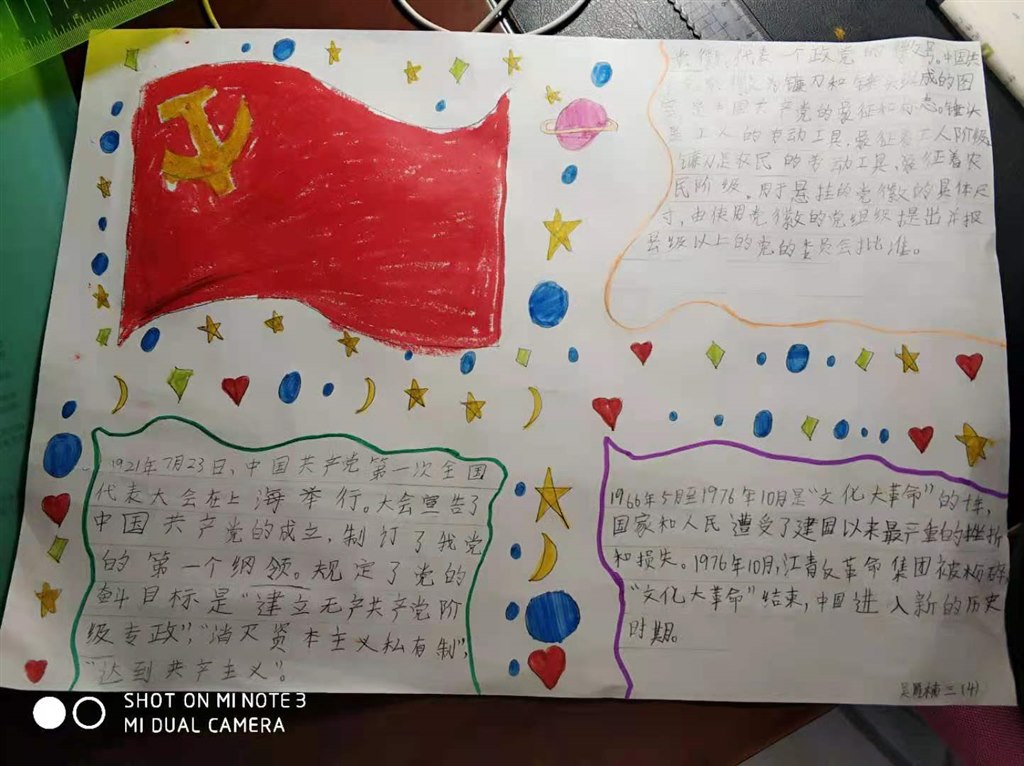 党徽, 代表一个政党的徽号。中国共
徽为镰刀和锤头组成的图
案, 是中国共产党的象征和标志。锤头
是工人的劳动工具, 象征着工人阶级,
镰刀是农民的劳动工具, 象征着农
民阶级。用于悬挂的党徽的具体尺
寸, 由使用党徽的党组织提出并报
县级以上的党的委员会批准。
1921年7月23日, 中国共产党第一次全国
代表大会在上海举行。大会宣告了
中国共产党的成立, 制订了我党
的第一个纲领。规定了党的
奋斗目标是“建立无产共产党阶
级专政”; “消灭资本主义私有制”;
“达到共产主义”。
1966年5月至1976年10月是“文化大革命”的十年,
国家和人民遭受了建国以来最严重的挫折
和损失。1976年10月, 江青反革命集团被粉碎,
“文化大革命”结束, 中国进入新的历史
时期。
三(4)
SHOT ON MI NOTE 3
MI DUAL CAMERA